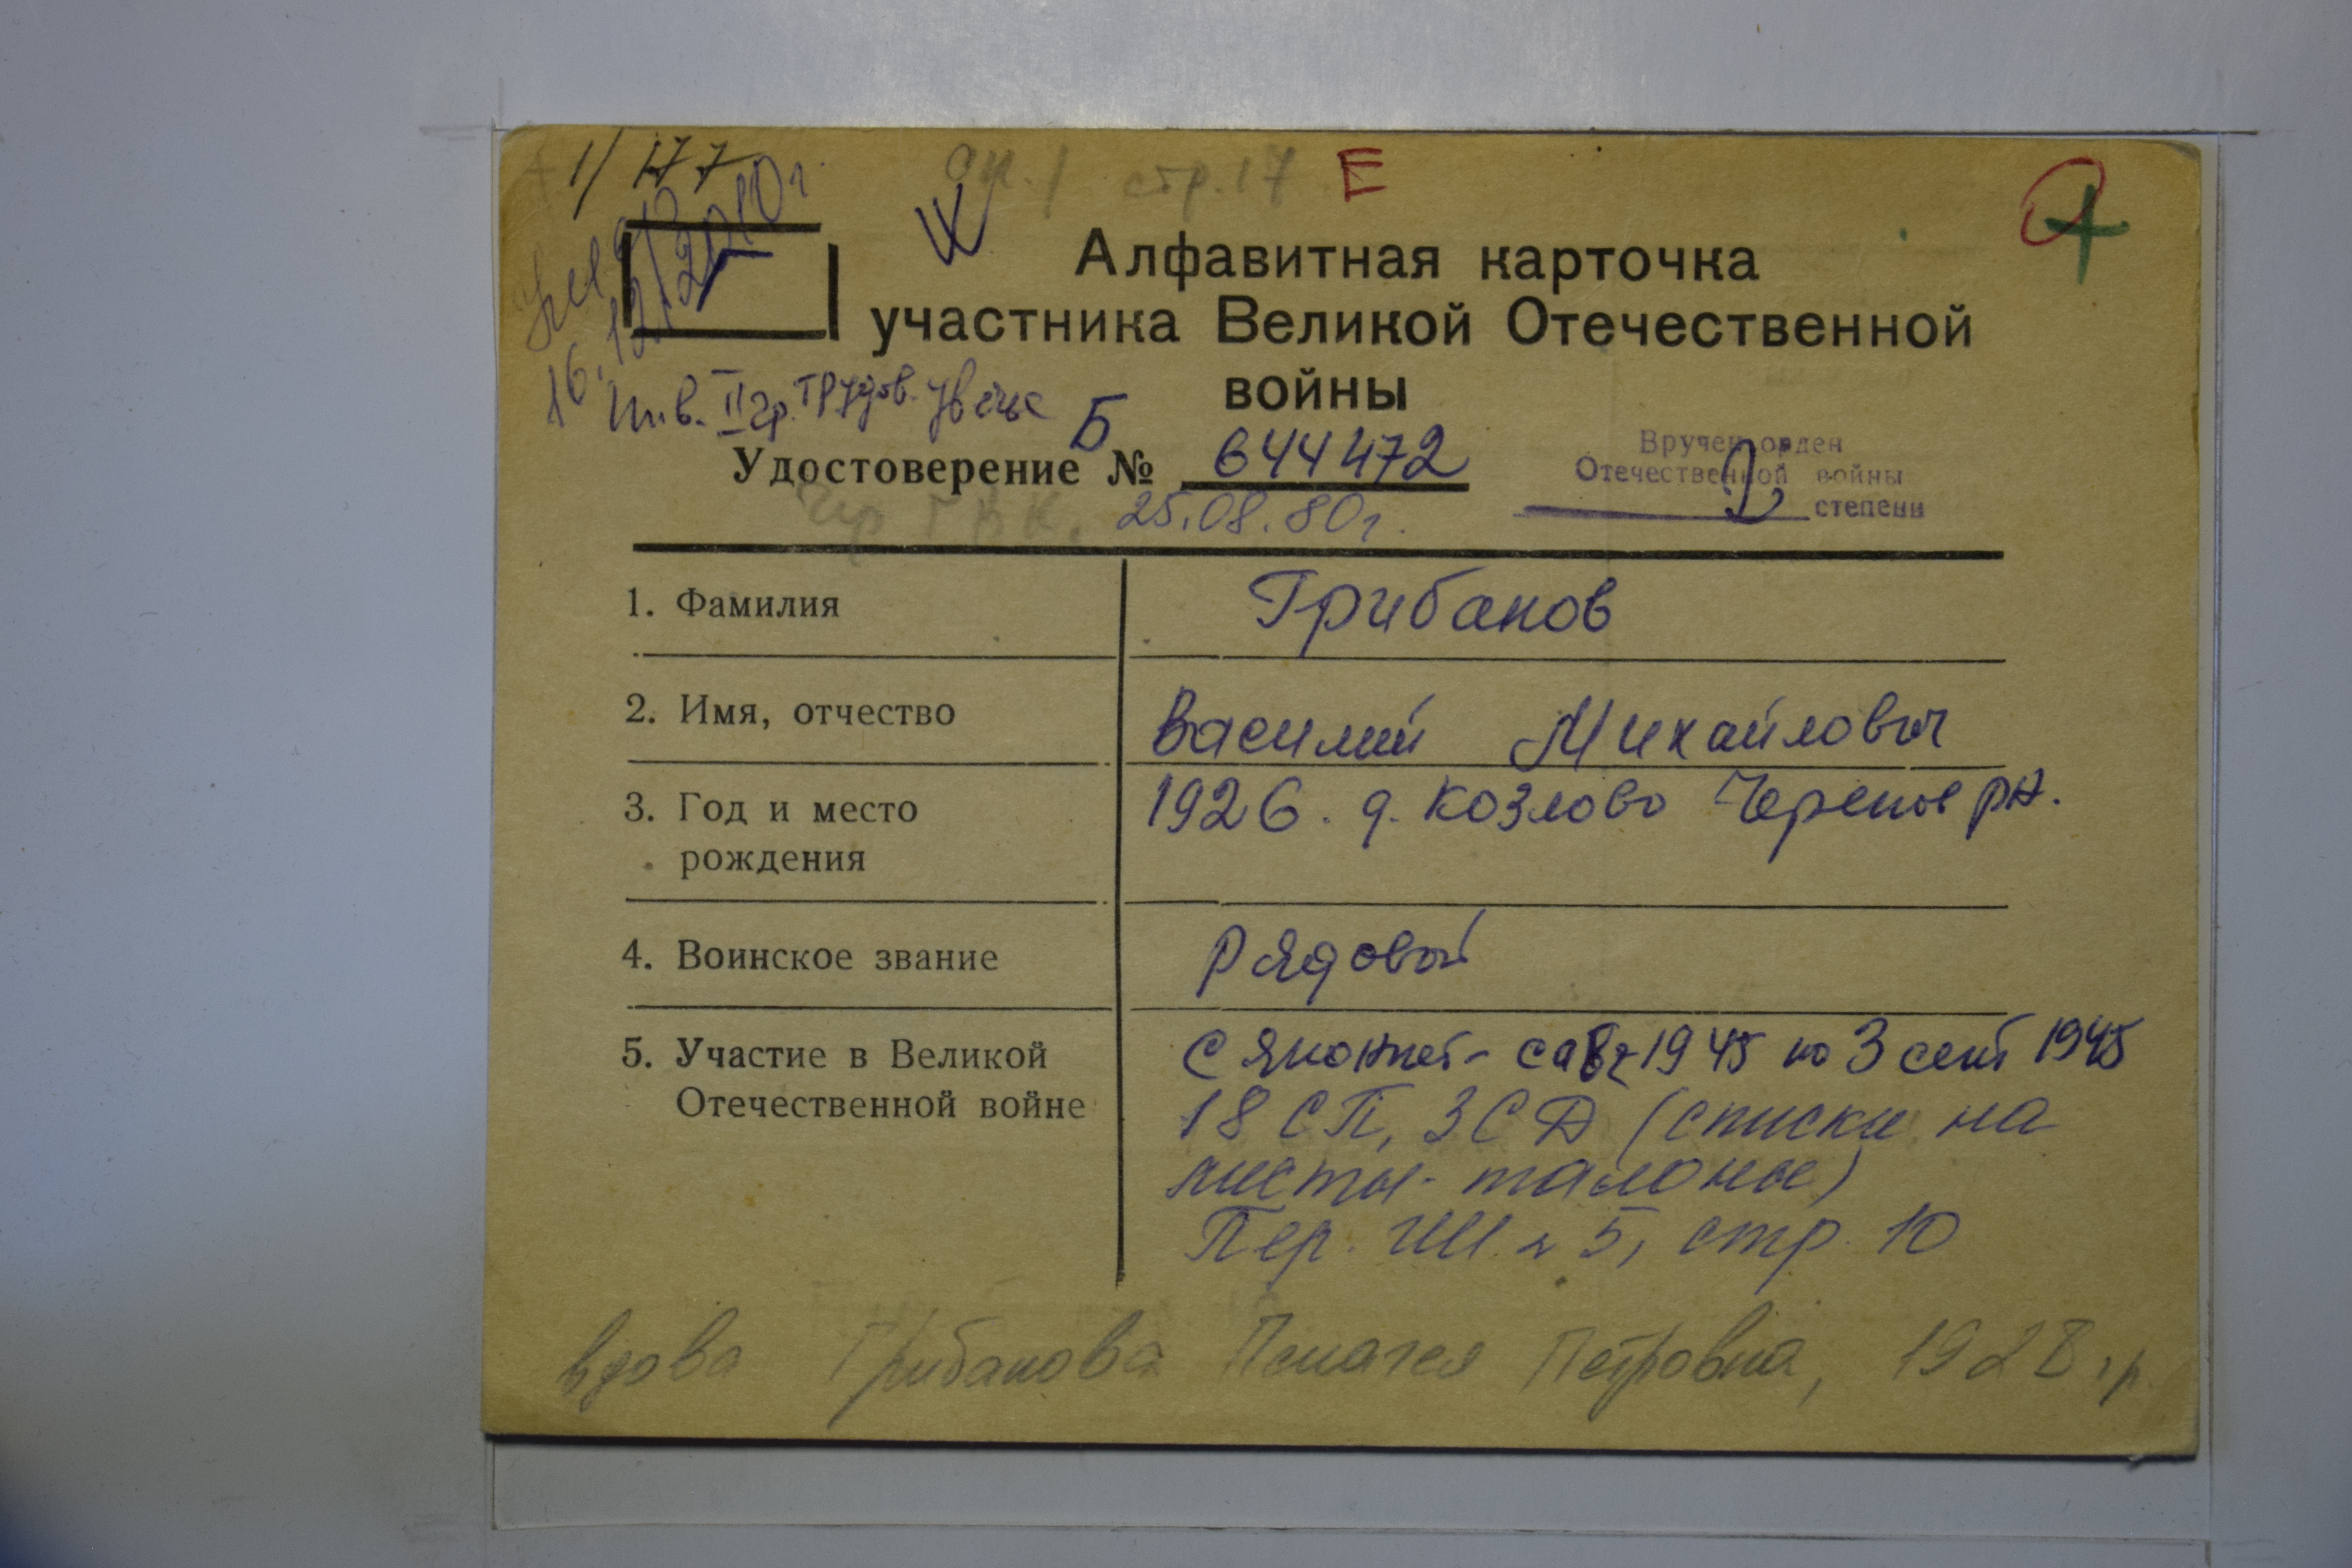 1/ 177
оп. 1 стр. 17 Е
Г
16.12.2010г.
Алфавитная карточка
участника Великой Отечественной
войны
Инв. II гр. трудов. увечье
Б
Удостоверение № 644472
Вручен орден
Отечественной войны
2 степени
Чер ГВК. 25.08.80г.
1. Фамилия Грибанов
2. Имя, отчество Василий Михайлович
3. Год и место 1926. д. Козлово Черепов рн.
рождения
4. Воинское звание Рядовой
5. Участие в Великой с Японией - с авг 1945 по 3 сент 1945
Отечественной войне 18 СП, 3 СД (списки на
листы-талоны)
Пер. 5, стр. 10
вдова Грибанова Пелагея Петровна, 1928 гр.